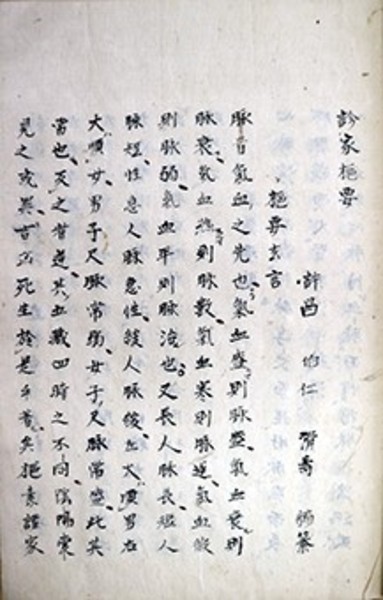 診家樞要
許昌 伯仁 滑壽 編纂
樞要玄言
脉者氣血之先也氣血盛則脉盛氣血衰則
脉衰氣血熱則脉數氣血寒則脉遲氣血微
則脉弱氣血平則脉治也又長人脉長短人
脉短性急人脉急性緩人脉緩左大順男右
大順女男子尺脉常弱女子尺脉常盛此其
當也反之者逆其五藏四時之不同陰陽
見之或異吉凶死生是乎着矣樞家